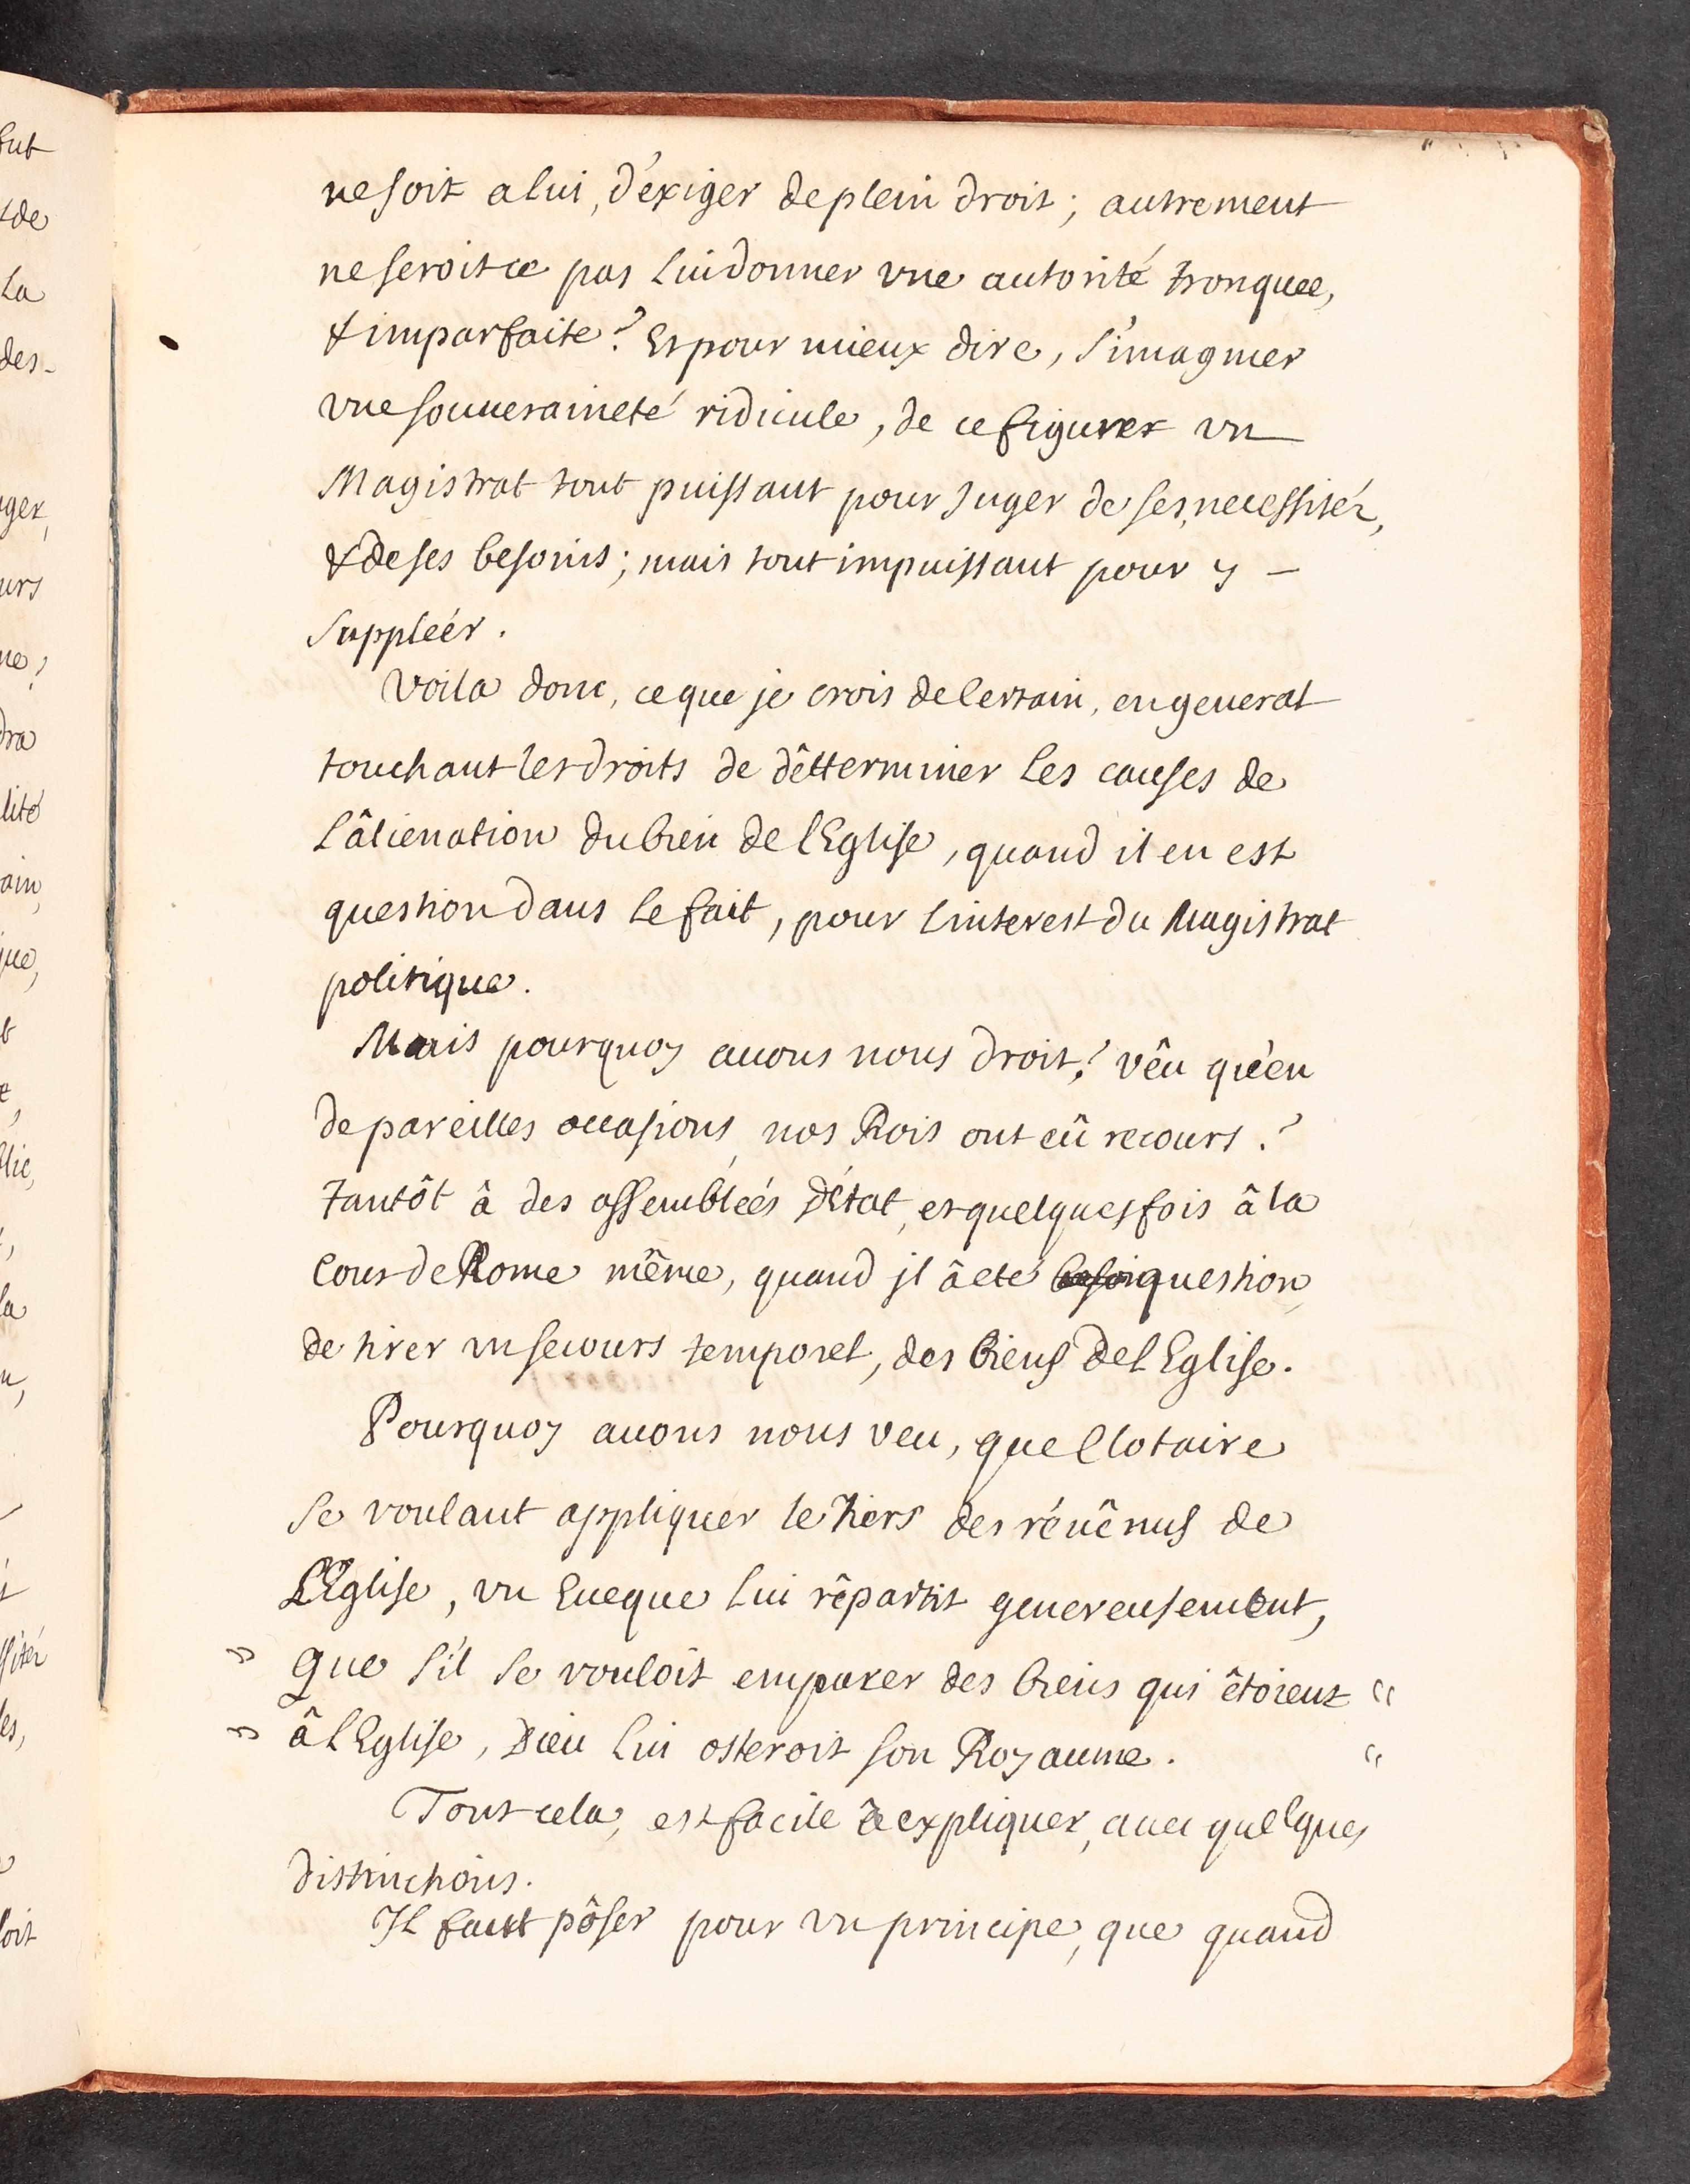 ne soit a lui, d'éxiger de plein droit; autrement
ne seroit ce pas lui donner vne autorité tronquee,
& imparfaite? Et pour mieux dire, s'imaginer
vne souueraineté ridicule, de ce figurer vn
Magistrat tout puissant pour juger de ses necessitéz,
& de ses besoins; mais tout impuissant pour y —
suppleér.
Voila donc, ce que je crois de certain, en general
touchant les droits de dêtterminer les causes de
l'âlienation du bien de l'Eglise, quand il en est
question dans le fait, pour l'interest du Magistrat
politique.
Mais pourquoy auons nous droit? vêu qu'en
de pareilles occasions, nos Rois ont eû recours?
tantôt â des assembleés d'état, et quelquesfois â la
Cour de Rome même, quand jl â eté besoin question
de tirer vn secours temporel, des biens de l'Eglise.
Pourquoy auons nous veu, que Clotaire
se voulant appliquer le tiers des réuênus de
L'Eglise, vn Eueque lui rêpartit genereusement,
" que s'il se vouloit emparer des biens qui êtoient "
" â l'Eglise, Dieu lui osteroit son Royaume. "
Tout cela, est facile â expliquer, auec quelques
distinctions.
Il faut pôser pour vn principe, que quand
fut
t de
la
des-
ger,
urs
ne?
dra
lité
ain,
que,
t
lic,
la
n,
ssitéz
les,
soit